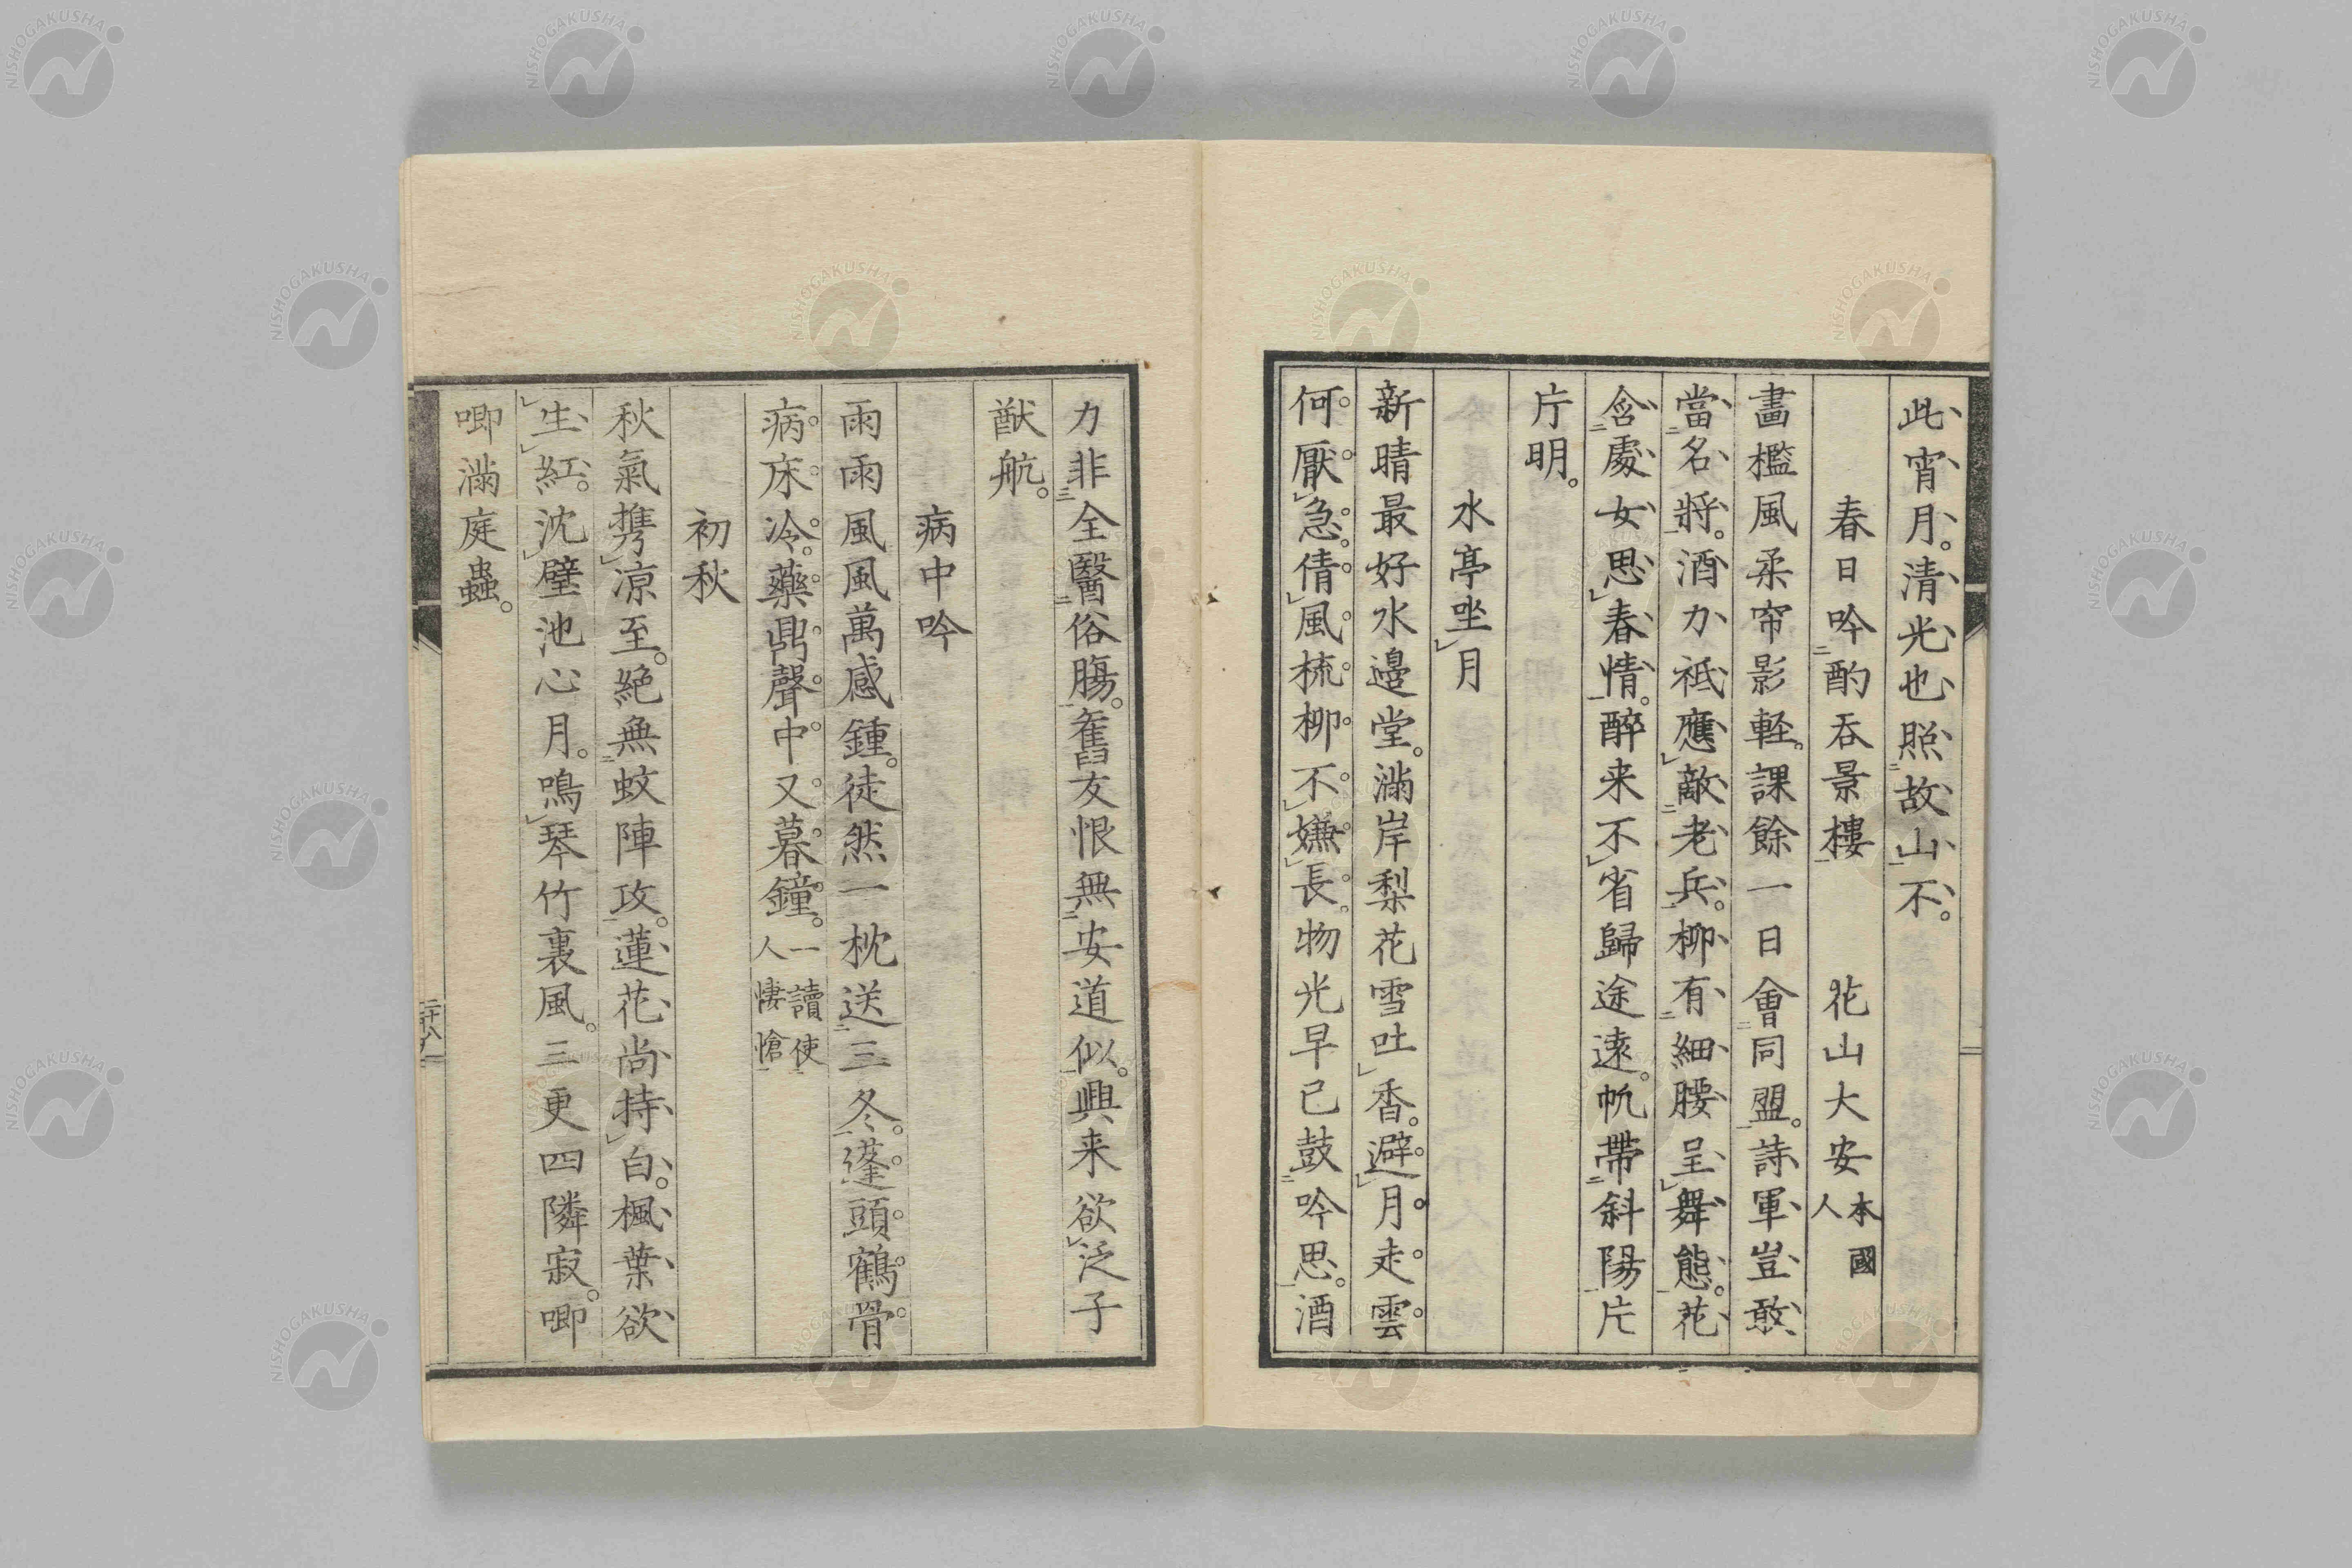 此宵月。清光也照故山不。
春日吟酌呑景樓 花山大安本國人
畫檻風柔帘影軽。課餘一日會同盟。詩軍豈敢
當名将。酒力祗應敵老兵。柳有細腰呈舞態。花
含處女思春情。醉来不省歸途遠。帆帶斜陽片
片明。
水亭坐月
新晴最好水邉堂。滿岸梨花雪吐香。避月走雲
何厭急。倩風梳柳不嫌長。物光早已鼓吟思。酒
力非全醫俗腸。舊友恨無安道似。興来欲泛子
猷航。
病中吟
雨雨風風萬感鍾。徒然一枕送三冬。蓬頭鶴骨
病床冷。藥鼎聲中又暮鐘。一讀使人悽愴
初秋
秋氣携凉至。絶無蚊陣攻。蓮花尚持白。楓葉欲
生紅。沈璧池心月。鳴琴竹裏風。三更四隣寂。唧
唧滿庭蟲。
二十八
NISHOGAKUSHA